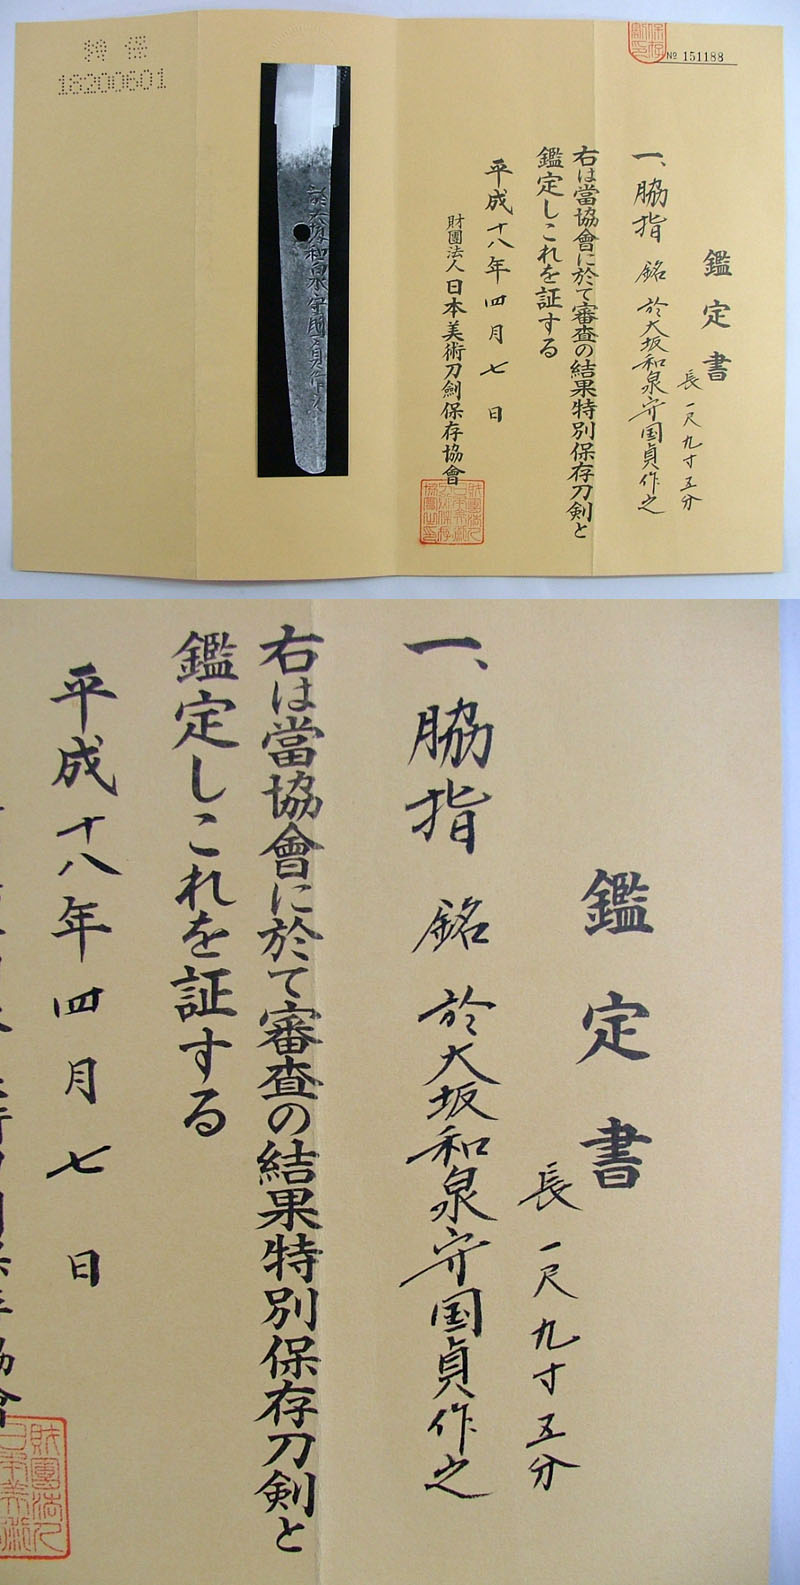 特保
18200601
No 151188
鑑定書
長一尺九寸五分
一、脇指 銘 於大坂和泉守国貞作之
右は當協會に於て審査の結果特別保存刀剣と
鑑定しこれを証する
平成十八年四月七日
財團法人日本美術刀劍保存協會
於大坂和泉守国貞作之
鑑定書
長一尺九寸五分
一、脇指 銘 於大坂和泉守国貞作之
右は當協會に於て審査の結果特別保存刀剣と
鑑定しこれを証する
平成十八年四月七日